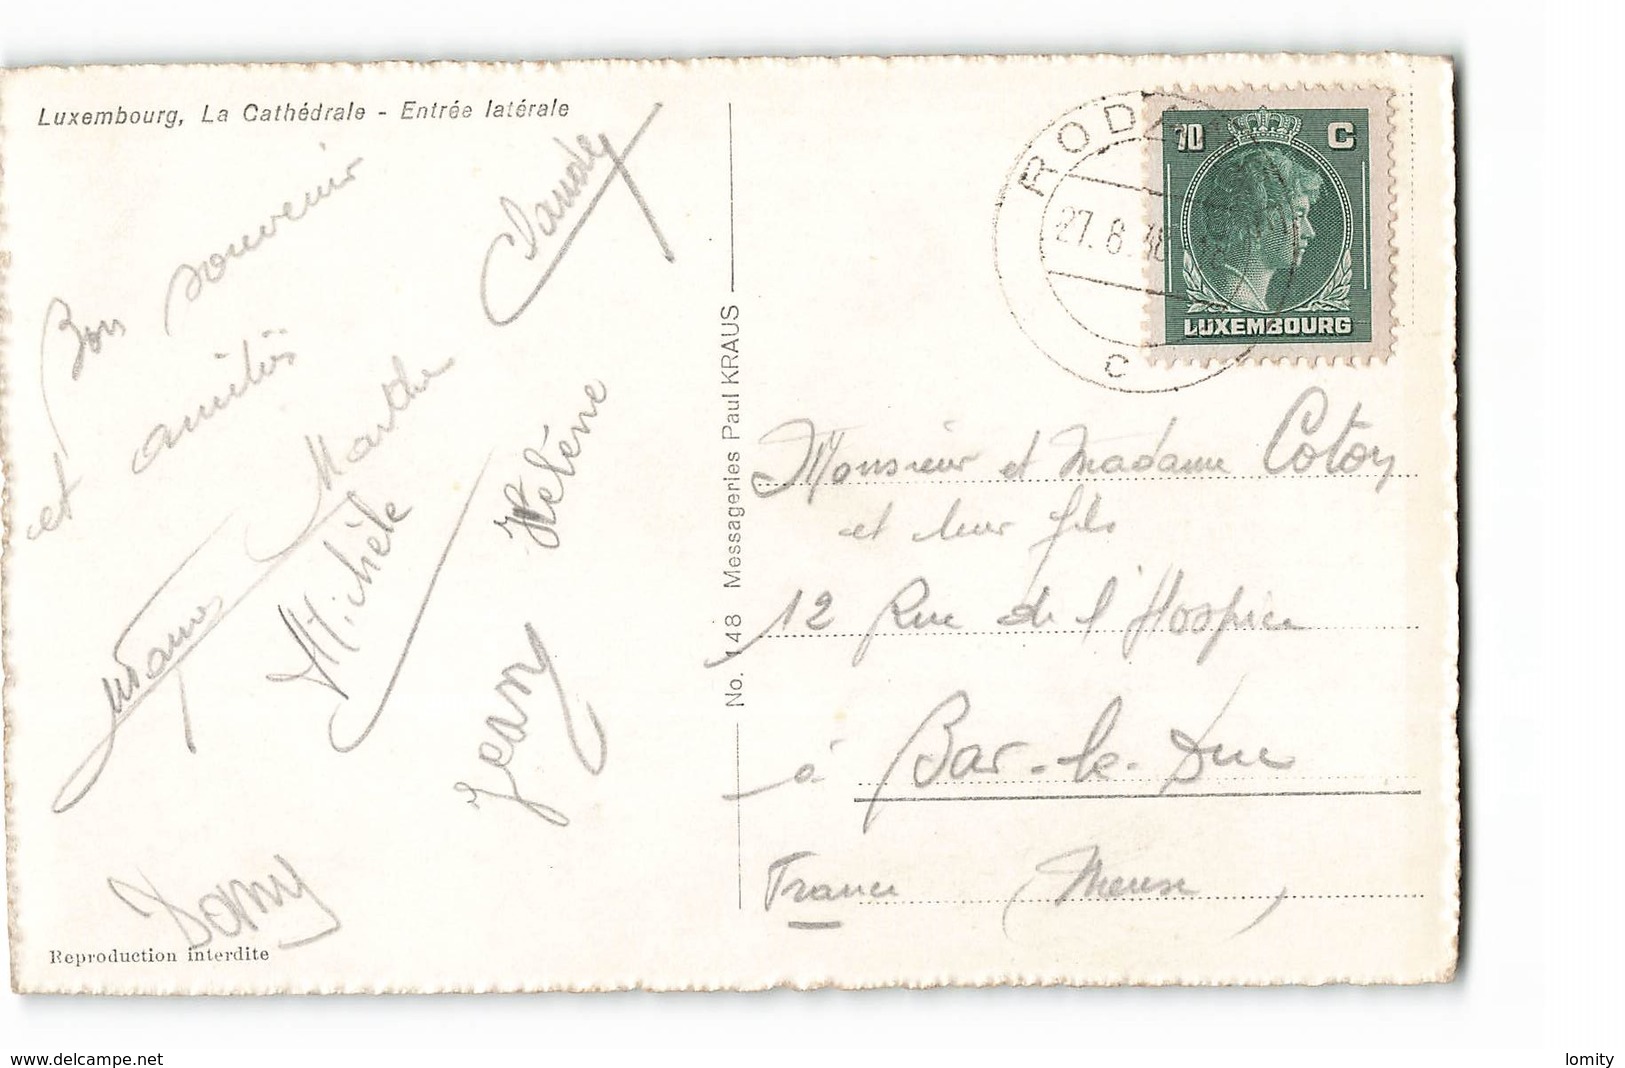 Luxembourg, La Cathédrale - Entrée latérale
Bon souvenir
et amitiés
Claudy
Marthe
Michèle
Hélène
Jeany
Domy
Reproduction interdite
No. 148 Messageries Paul KRAUS
RODA
27. 8.
c
70 C
LUXEMBOURG
Monsieur et Madame Cotoy
et leur fils
12 Rue de l'Hospice
à Bar-le-Duc
France (Meuse)
www.delcampe.net
lomity